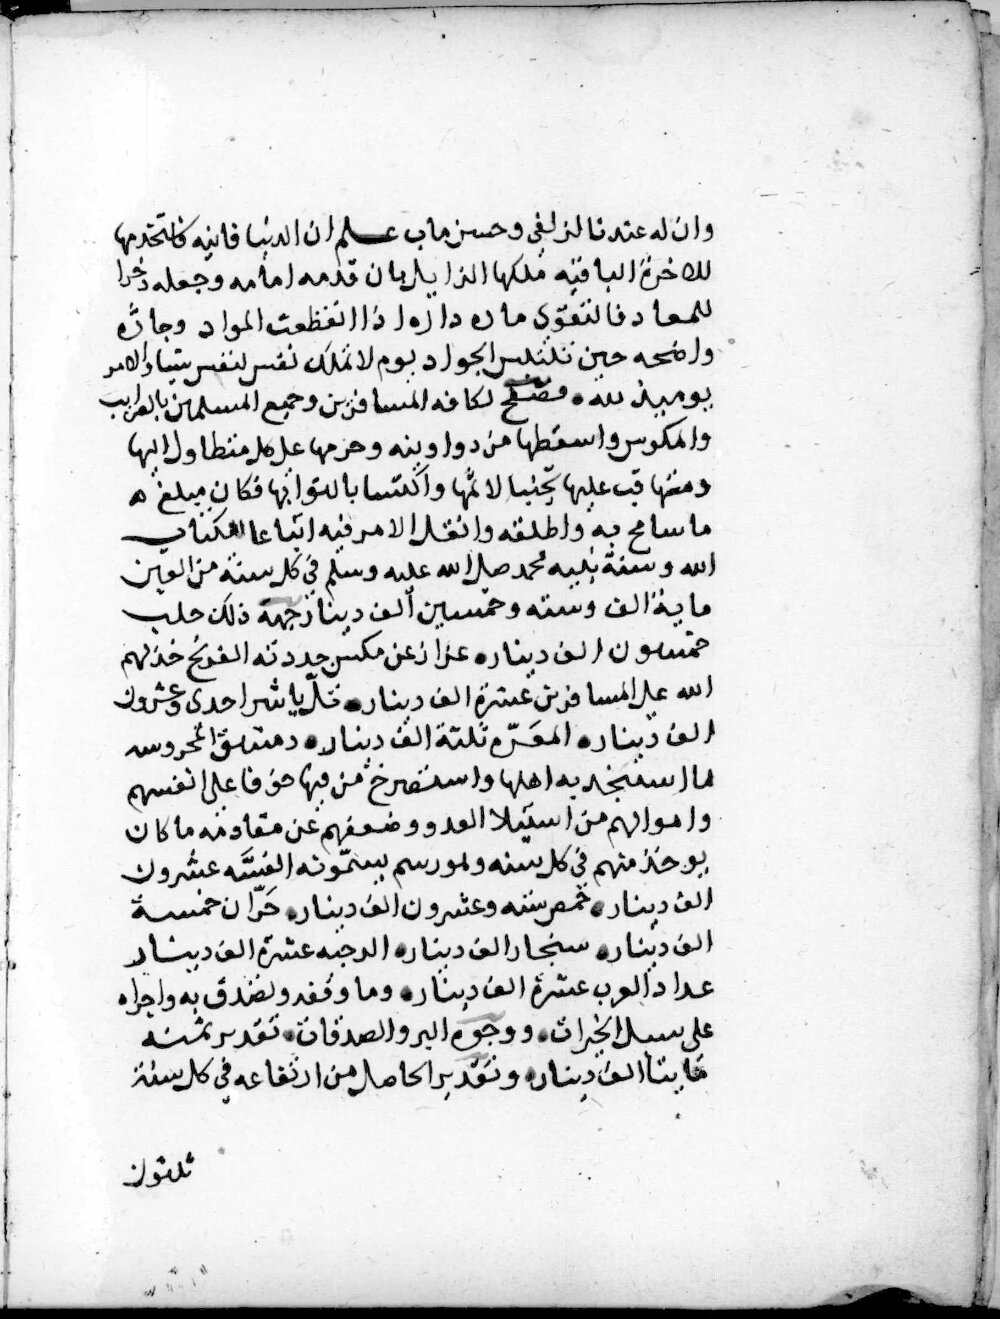 وان له عندنا لزلفي وحسن ماب علم ان الدنيا فانيه فاستخدمها
للاخرة الباقيه فملكها الزايل بان قدمه امامه وجعله ذخرا
للمعاد فالتقوي ماده داره اذا انقطعت المواد وجاده
واضحه حين تلتبس الجواد يوم لا تملك نفس لنفس شيا والامر
يوميذ لله . فصفح لكافه المسافرين وجميع المسلمين بالضرايب
والمكوس واسقطها من دواوينه وحرمها علي كل متطاول اليها
ومتهافت عليها تجنبا لاثمها واكتسابا لثوابها فكان مبلغ ه
ما سامح به واطلقه وانفذ الامر فيه اتباعا لكتاب
الله وسنة نبيه محمد صلي الله عليه وسلم في كل سنة من العين
ماية الف وسته وخمسين الف دينار جهة ذلك حلب
خمسون الف دينار . عزاز عن مكس جددته الفرنج خذلهم
الله علي المسافرين عشرة الف دينار . تل باشر احدي وعشرون
الف دينار . المعره ثلثة الف دينار . دمشق المحروسه
لما استنجد به اهلها واستصرخ من فيها خوفا علي انفسهم
واموالهم من استيلا العدو وضعفهم عن مقاومه ما كان
يوخذ منهم في كل سنه ولمو رسم يسمونه الفسه عشرون
الف دينار . حمص سته وعشرون الف دينار . حران خمسة
الف دينار . سنجار الف دينار . الرحبه عشرة الف دينار
عداد العرب عشرة الف دينار . وما وقفه وتصدق به واجراه
علي سبيل الخيرات . ووجوه البر والصدقات . تقدير ثمنه
مايتا الف دينار . وتقدير الحاصل من ارتفاعه في كل سنة
ثلثون